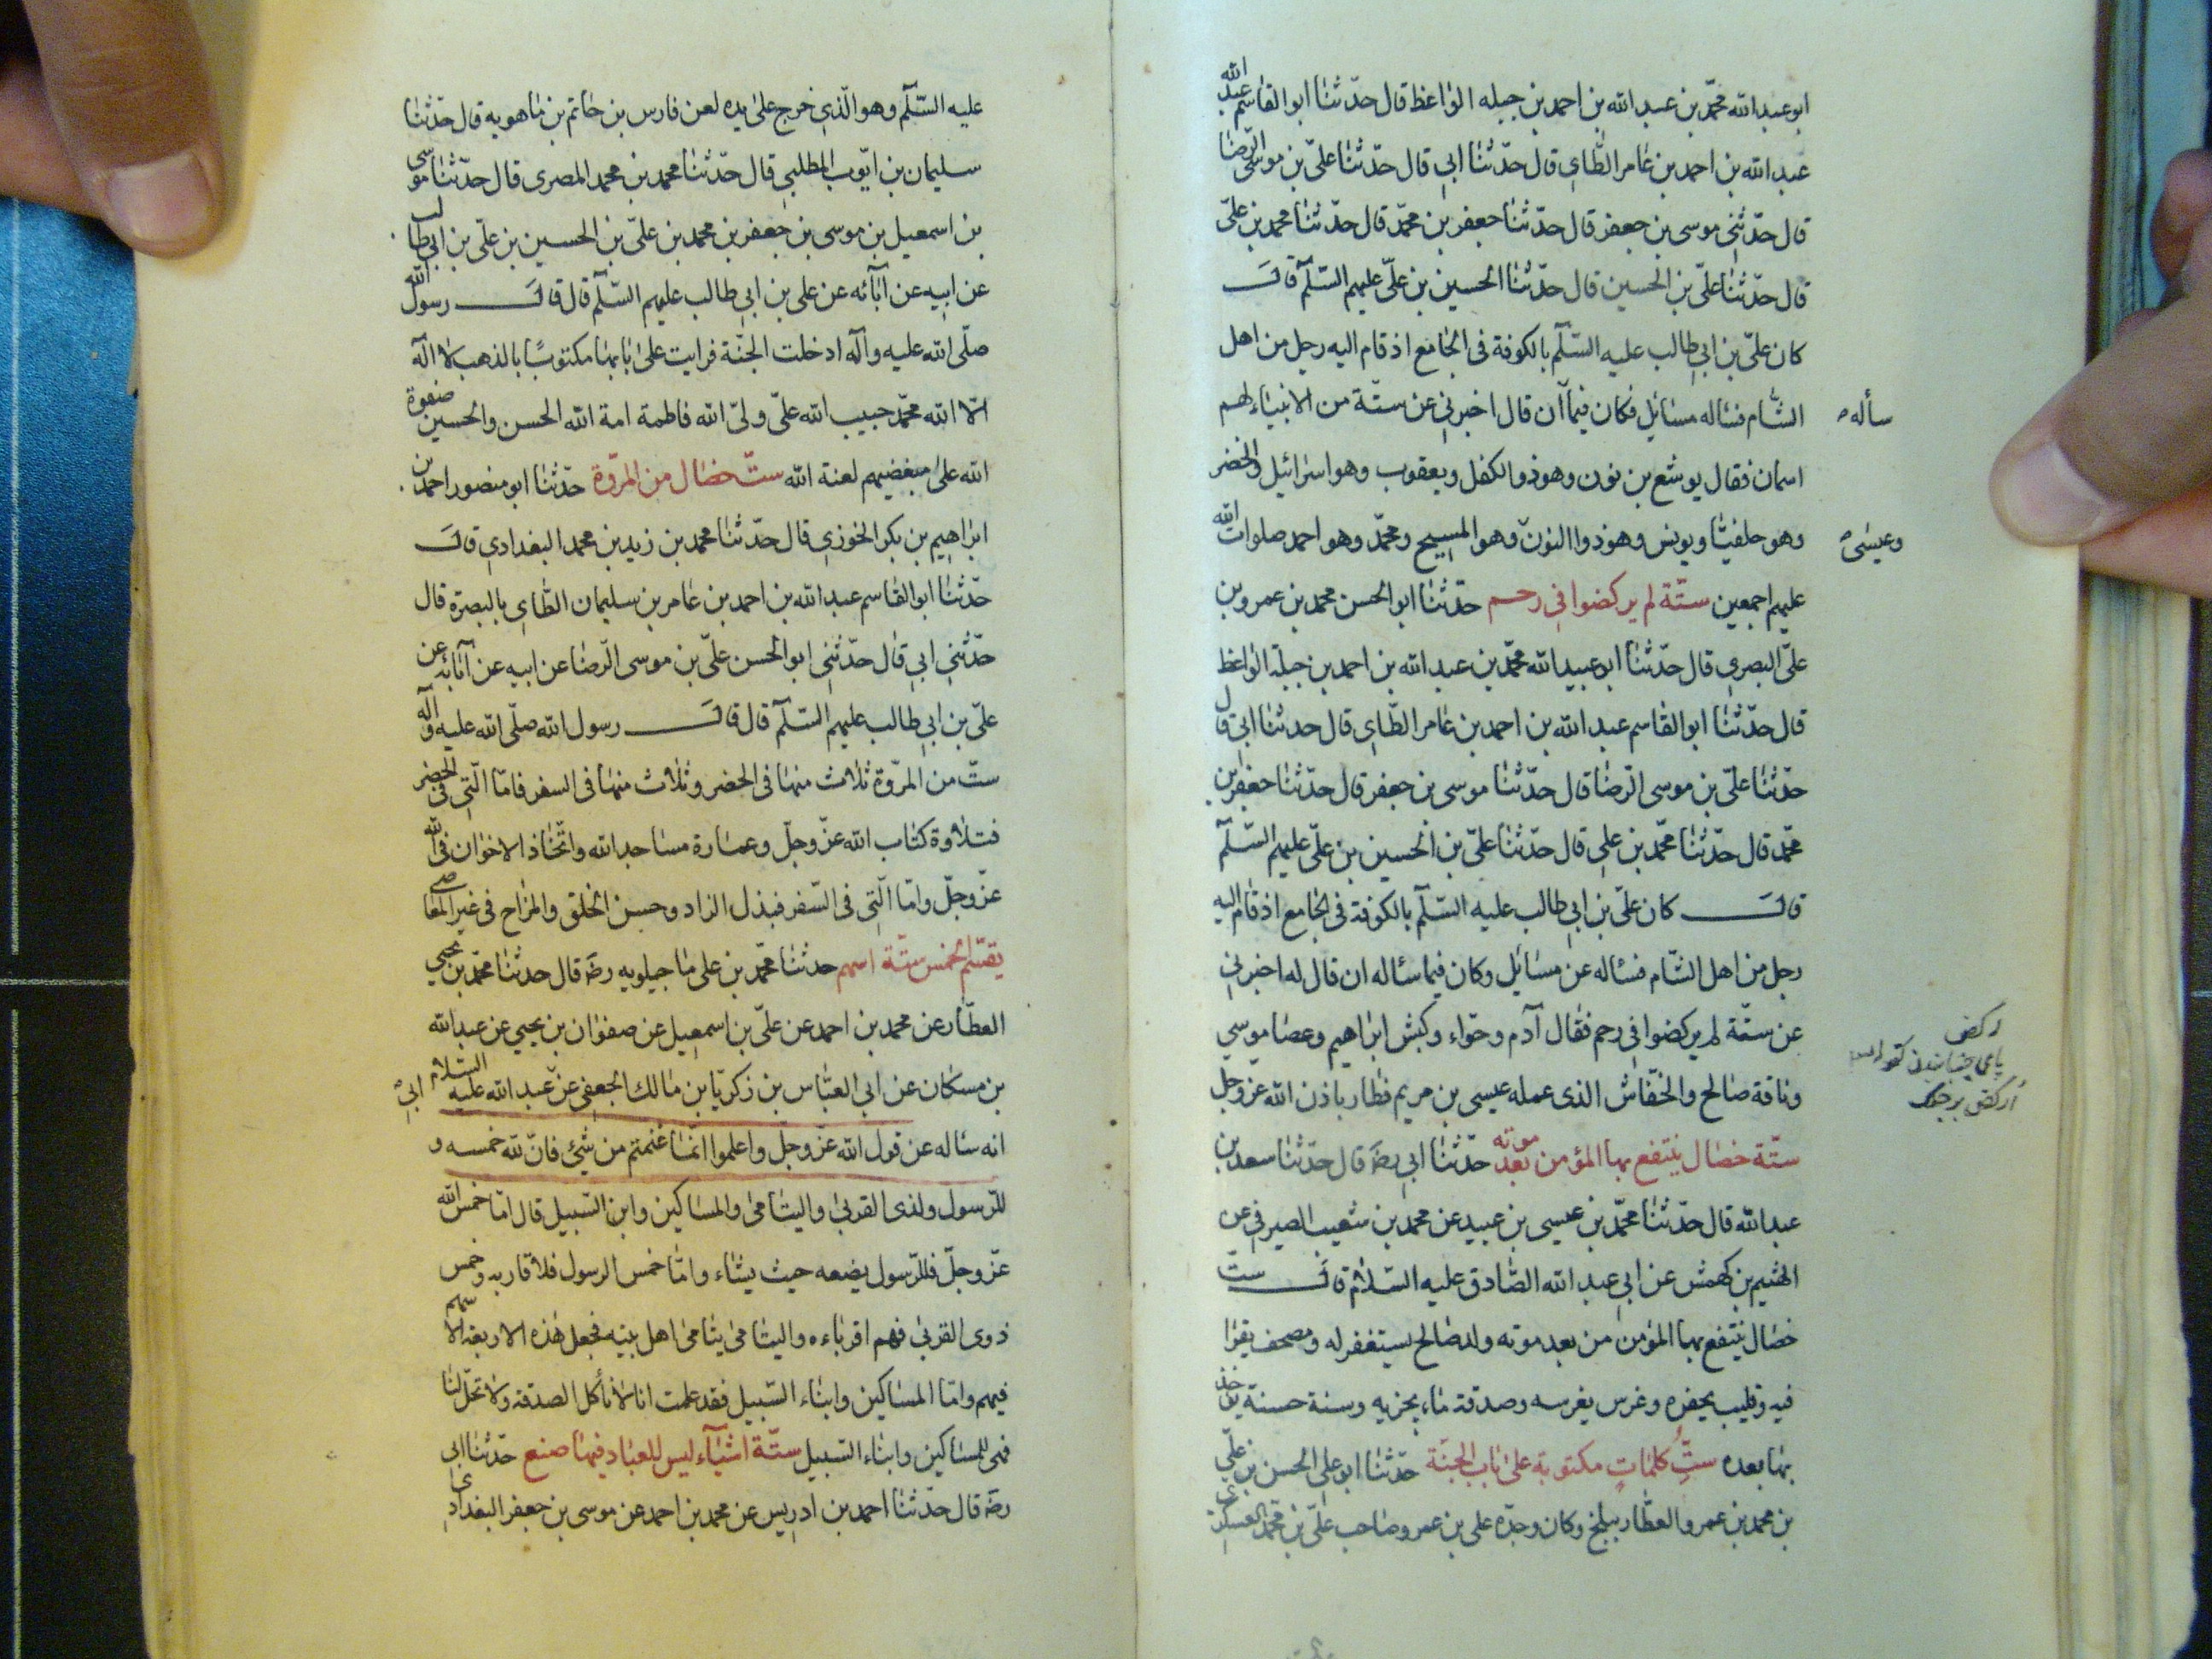 ابو عبد الله محمّد بن عبد الله بن احمد بن جبله الواعظ قال حدّثنا ابو القاسم عبد الله
عبد الله بن احمد بن عامر الطّاي قال حدّثنا ابي قال حدّثنا علىّ بن موسى الرّضا
قال حدّثني موسى بن جعفر قال حدّثنا جعفر بن محمّد قال حدّثنا محمد بن علىّ
قال حدّثنا علىّ بن الحسين قال حدّثنا الحسين بن علىّ عليهم السّلم قال
كان علىّ بن ابي طالب عليه السّلم بالكوفة فى الجامع اذ قام اليه رجل من اهل
الشّام فسئاله مسائل فكان فيما ان قال اخبرني عن ستّة من الانبياء لهم
سأله
اسمان فقال يوشع بن نون وهو ذوالكفل ويعقوب وهو اسرائيل والخضر
وهو حلفيثا ويونس وهو ذوا النون وهو المسيح ومحمّد وهو احمد صلوات الله
وعيسى
عليهم اجمعين ستّة لم يركضوا في رحم حدّثنا ابو الحسن محمد بن عمرو بن
علىّ البصرى قال حدّثنا ابو عبيد الله محمّد بن عبد الله بن احمد بن جبلة الواعظ
قال حدّثنا ابو القاسم عبد الله بن احمد بن عامر الطّاي قال حدثنا ابي قال
حدّثنا علىّ بن موسى الرّضا قال حدّثنا موسى بن جعفر قال حدّثنا جعفر بن
محمّد قال حدّثنا محمّد بن على قال حدّثنا علىّ بن الحسين بن علىّ عليهم السّلم
قال كان علىّ بن ابي طالب عليه السّلم بالكوفة فى الجامع اذ قام اليه
رجل من اهل الشّام فسئاله عن مسائل وكان فيما سئاله ان قال له اخبرني
عن ستّة لم يركضوا في رحم فقال آدم وحوّاء وكبش ابراهيم وعصا موسي
ركض
اركض برجلك
وناقة صالح والخفّاش الذى عمله عيسى بن مريم فطار باذن الله عزّ وجلّ
ستّة خصال ينتفع بها المؤمن بعد موته حدّثنا ابي رضه قال حدّثنا سعد بن
عبد الله قال حدّثنا محمّد بن عيسى بن عبيد عن محمد بن شعيب الصيرفي عن
الهثيم بن كهمش عن ابي عبد الله الصّادق عليه السّلام قال ست
خصال ينتفع بها المؤمن من بعد موته ولد صالح يستغفر له ومصحف يقرا
فيه وقليب يحفره وغرس يغرسه وصدقة ماء يجزيه وسنة حسنة يؤخذ
بها بعده ستُّ كلماتٍ مكتوبة على باب الجنّة حدّثنا ابو على الحسن بن علىّ
بن محمد بن عمرو العطّار ببلخ وكان وجدّه على بن عمرو صاحب علىّ بن محمّد العسكرى
عليه السّلم وهو الّذي خرج على يده لعن فارس بن حاتم بن ماهويه قال حدّثنا
سليمان بن ايّوب المطلبي قال حدّثنا محمد بن محمد المصرى قال حدّثنا موسى
بن اسمعيل بن موسى بن جعفر بن محمد بن علىّ بن الحسين بن علىّ بن ابي طالب
عن ابيه عن آبائه عن على بن ابي طالب عليهم السّلم قال قال رسول الله
صلّى الله عليه وآله ادخلت الجنّة فرايت على بابها مكتوبًا بالذهب لا اله
الّا الله محمّد حبيب الله علىّ ولىّ الله فاطمة امة الله الحسن والحسين صفوة
الله على مبغضيهم لعنة الله ستّ خصال من المرّوة حدّثنا ابو منصور احمد بن
ابراهيم بن بكر الخوزي قال حدّثنا محمد بن زيد بن محمد البغدادي قال
حدّثنا ابو القاسم عبد الله بن احمد بن عامر بن سليمان الطّاي بالبصرة قال
حدّثني ابي قال حدّثني ابو الحسن علىّ بن موسى الرّضا عن ابيه عن آبائه عن
علىّ بن ابي طالب عليهم السّلم قال قال رسول الله صلّى الله عليه وآله
ستّ من المرّوة ثلاث منها فى الحضر وثلاث منها فى السفر فامّا الّتى فى الحضر
فتلاوة كتاب الله عزّ وجلّ وعمارة مساجد الله واتّخاذ الاخوان فى الله
عزّ وجلّ وامّا الّتى فى السّفر فبذل الزاد وحسن الخلق والمزاح فى غير المعاصى
يقسّم الخمس ستّة اسهم حدثنا محمّد بن على ماجيلويه رضه قال حدثنا محمّد بن يحيى
العطّار عن محمد بن احمد عن علىّ بن اسمعيل عن صفوان بن يحيي عن عبد الله
بن مسكان عن ابي العبّاس بن زكريّا بن مالك الجعفى عن عبد الله عليه السّلام
ابي
انه سئاله عن قول الله عزّ وجلّ واعلموا انّما غنمتم من شيئ فانّ لله خمسه و
للرّسول ولذى القربى واليتامى والمساكين وابن السّبيل قال امّا خمس الله
عزّ وجلّ فللرّسول يضعه حيث يشاء وامّا خمس الرسول فلاقاربه وخمس
ذوى القربى فهم اقرباءه واليتامى يتامى اهل بيته فجعل هذه الاربعة الاسهم
فيهم وامّا المساكين وابناء السّبيل فقد علمت انا لا نأكل الصدقة ولا تحلّ لنا
فهى للمساكين وابناء السّبيل ستّة اشيآء ليس للعباد فيها صنع حدّثنا ابى
رضه قال حدّثنا احمد بن ادريس عن محمد بن احمد عن موسى بن جعفر البغدادى